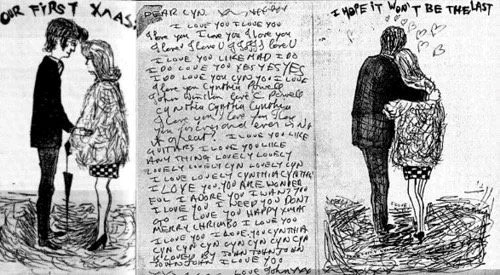 OUR FIRST XMAS.
DEAR CYN
I LOVE YOU I LOVE YOU
I love you I love you I love you
I love I love U I love U
I LOVE YOU LIKE MAD I DO
I DO LOVE YOU YES YES YES
I DO LOVE YOU CYN YOU I LOVE
I love you Cynthia Powell
John Winston love C Powell
Cynthia Cynthia Cynthia
I love you I love you I love
you forever and ever
I LOVE YOU LIKE
GUITARS I LOVE YOU LIKE
ANYTHING LOVELY LOVELY
LOVELY LOVELY CYN LOVELY CYN
I LOVE LOVELY CYNTHIA CYNTHIA
I LOVE YOU. YOU ARE WONDER
FUL I ADORE YOU I WANT YOU
I LOVE YOU I NEED YOU DONT
GO I LOVE YOU HAPPY XMAS
MERRY CHRIMBO I LOVE YOU
I LOVE YOU I LOVE YOU CYNTHIA
CYN CYN CYN CYN CYN CYN CYN
IS LOVED BY JOHN JOHN JOHN
JOHN JOHN I LOVE YOU
LOVE JOHN
I HOPE IT WON'T BE THE LAST